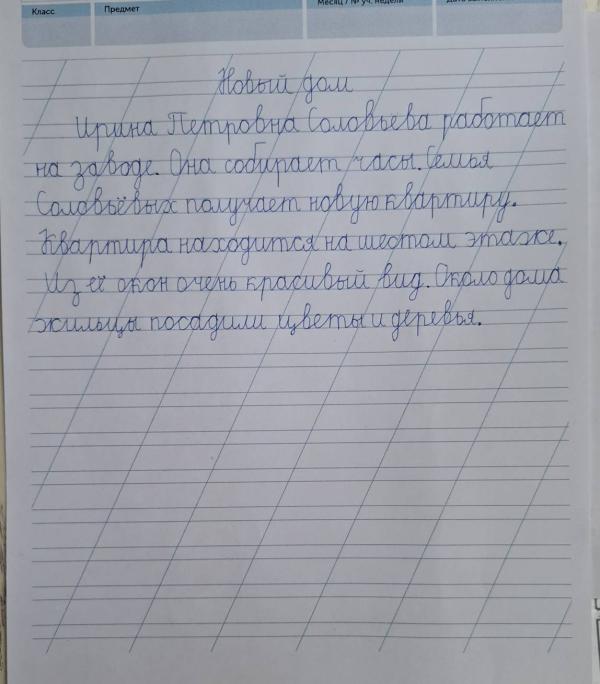 Класс Предмет Месяц / № уч. недели
Новый дом
Ирина Петровна Соловьева работает
на заводе. Она собирает часы. Семья
Соловьёвых получает новую квартиру.
Квартира находится на шестом этаже.
Из её окон очень красивый вид. Около дома
жильцы посадили цветы и деревья.